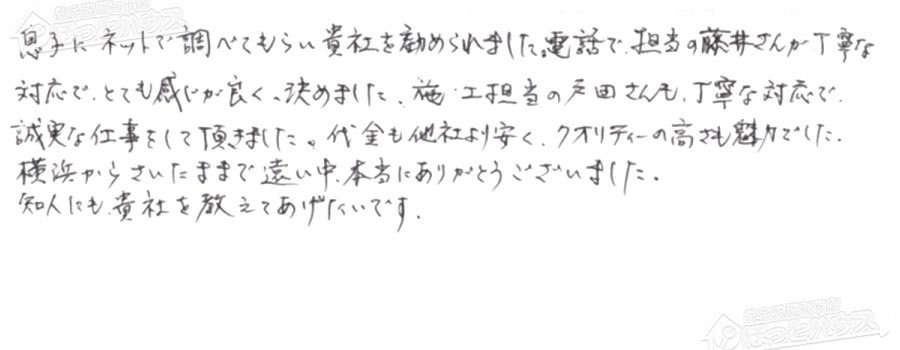 息子にネットで調べてもらい貴社を勧められました。電話で、担当の藤井さんが丁寧な
対応で、とても感じが良く、決めました。施工担当の戸田さんも、丁寧な対応で、
誠実な仕事をして頂きました。代金も他社より安く、クオリティーの高さも魅力でした。
横浜からさいたままで遠い中、本当にありがとうございました。
知人にも、貴社を教えてあげたいです。
ほっとハウス